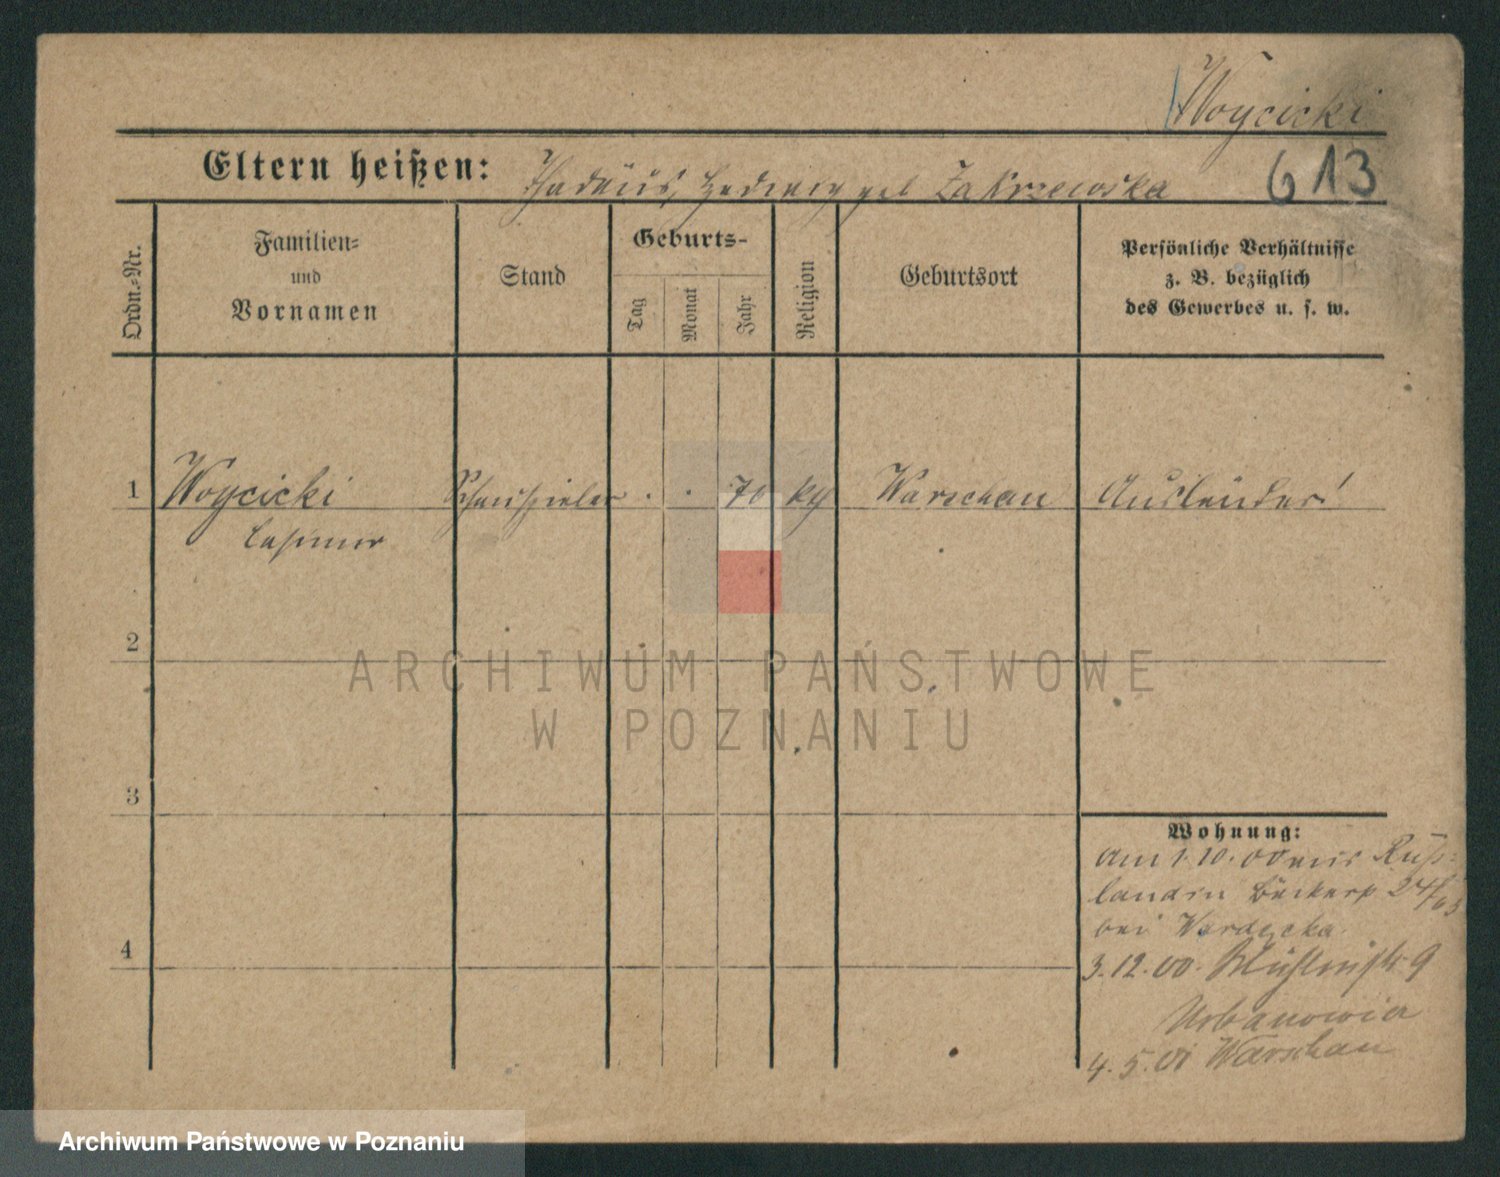 Woycicki
Eltern heißen: Thadäus, Hedwig geb Zakrzewska
613
Ordn.-Nr.
Familien-
und
Vornamen
Stand
Geburts-
Tag
Monat
Jahr
Religion
Geburtsort
Persönliche Verhältnisse
z. B. bezüglich
des Gewerbes u. s. w.
1 Woycicki Schauspieler . . 70 Warschau Ausländer!
Casimir
2
3
4
Wohnung:
Am 1.10.00 aus Ruß-
land in
bei
3.12.00. Mühlenstr 9
Urbanowia
4.5.01 Warschau
ARCHIWUM PAŃSTWOWE
W POZNANIU
Archiwum Państwowe w Poznaniu